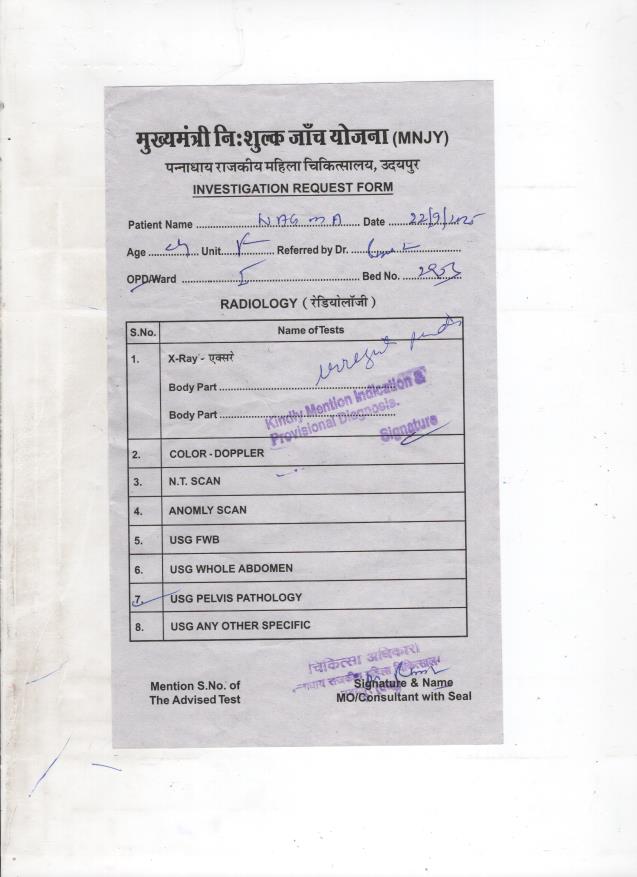 मुख्यमंत्री निःशुल्क जाँच योजना (MNJY)
पन्नाधाय राजकीय महिला चिकित्सालय, उदयपुर
INVESTIGATION REQUEST FORM
Patient Name ........ NAGMA ........ Date ........ 22/9/2025
Age ........ Unit ........ Referred by Dr. ........
OPD/Ward ........ I ........ Bed No. ........
RADIOLOGY ( रेडियोलॉजी )
S.No. Name of Tests
1. X-Ray - एक्सरे
Body Part ........
Kindly Mention Indication &
Body Part ........
Provisional Diagnosis.
Signature
2. COLOR - DOPPLER
3. N.T. SCAN
4. ANOMLY SCAN
5. USG FWB
6. USG WHOLE ABDOMEN
7. USG PELVIS PATHOLOGY
8. USG ANY OTHER SPECIFIC
चिकित्सा अधिकारी
राजकीय महिला चिकित्सालय
Mention S.No. of Signature & Name
The Advised Test MO/Consultant with Seal